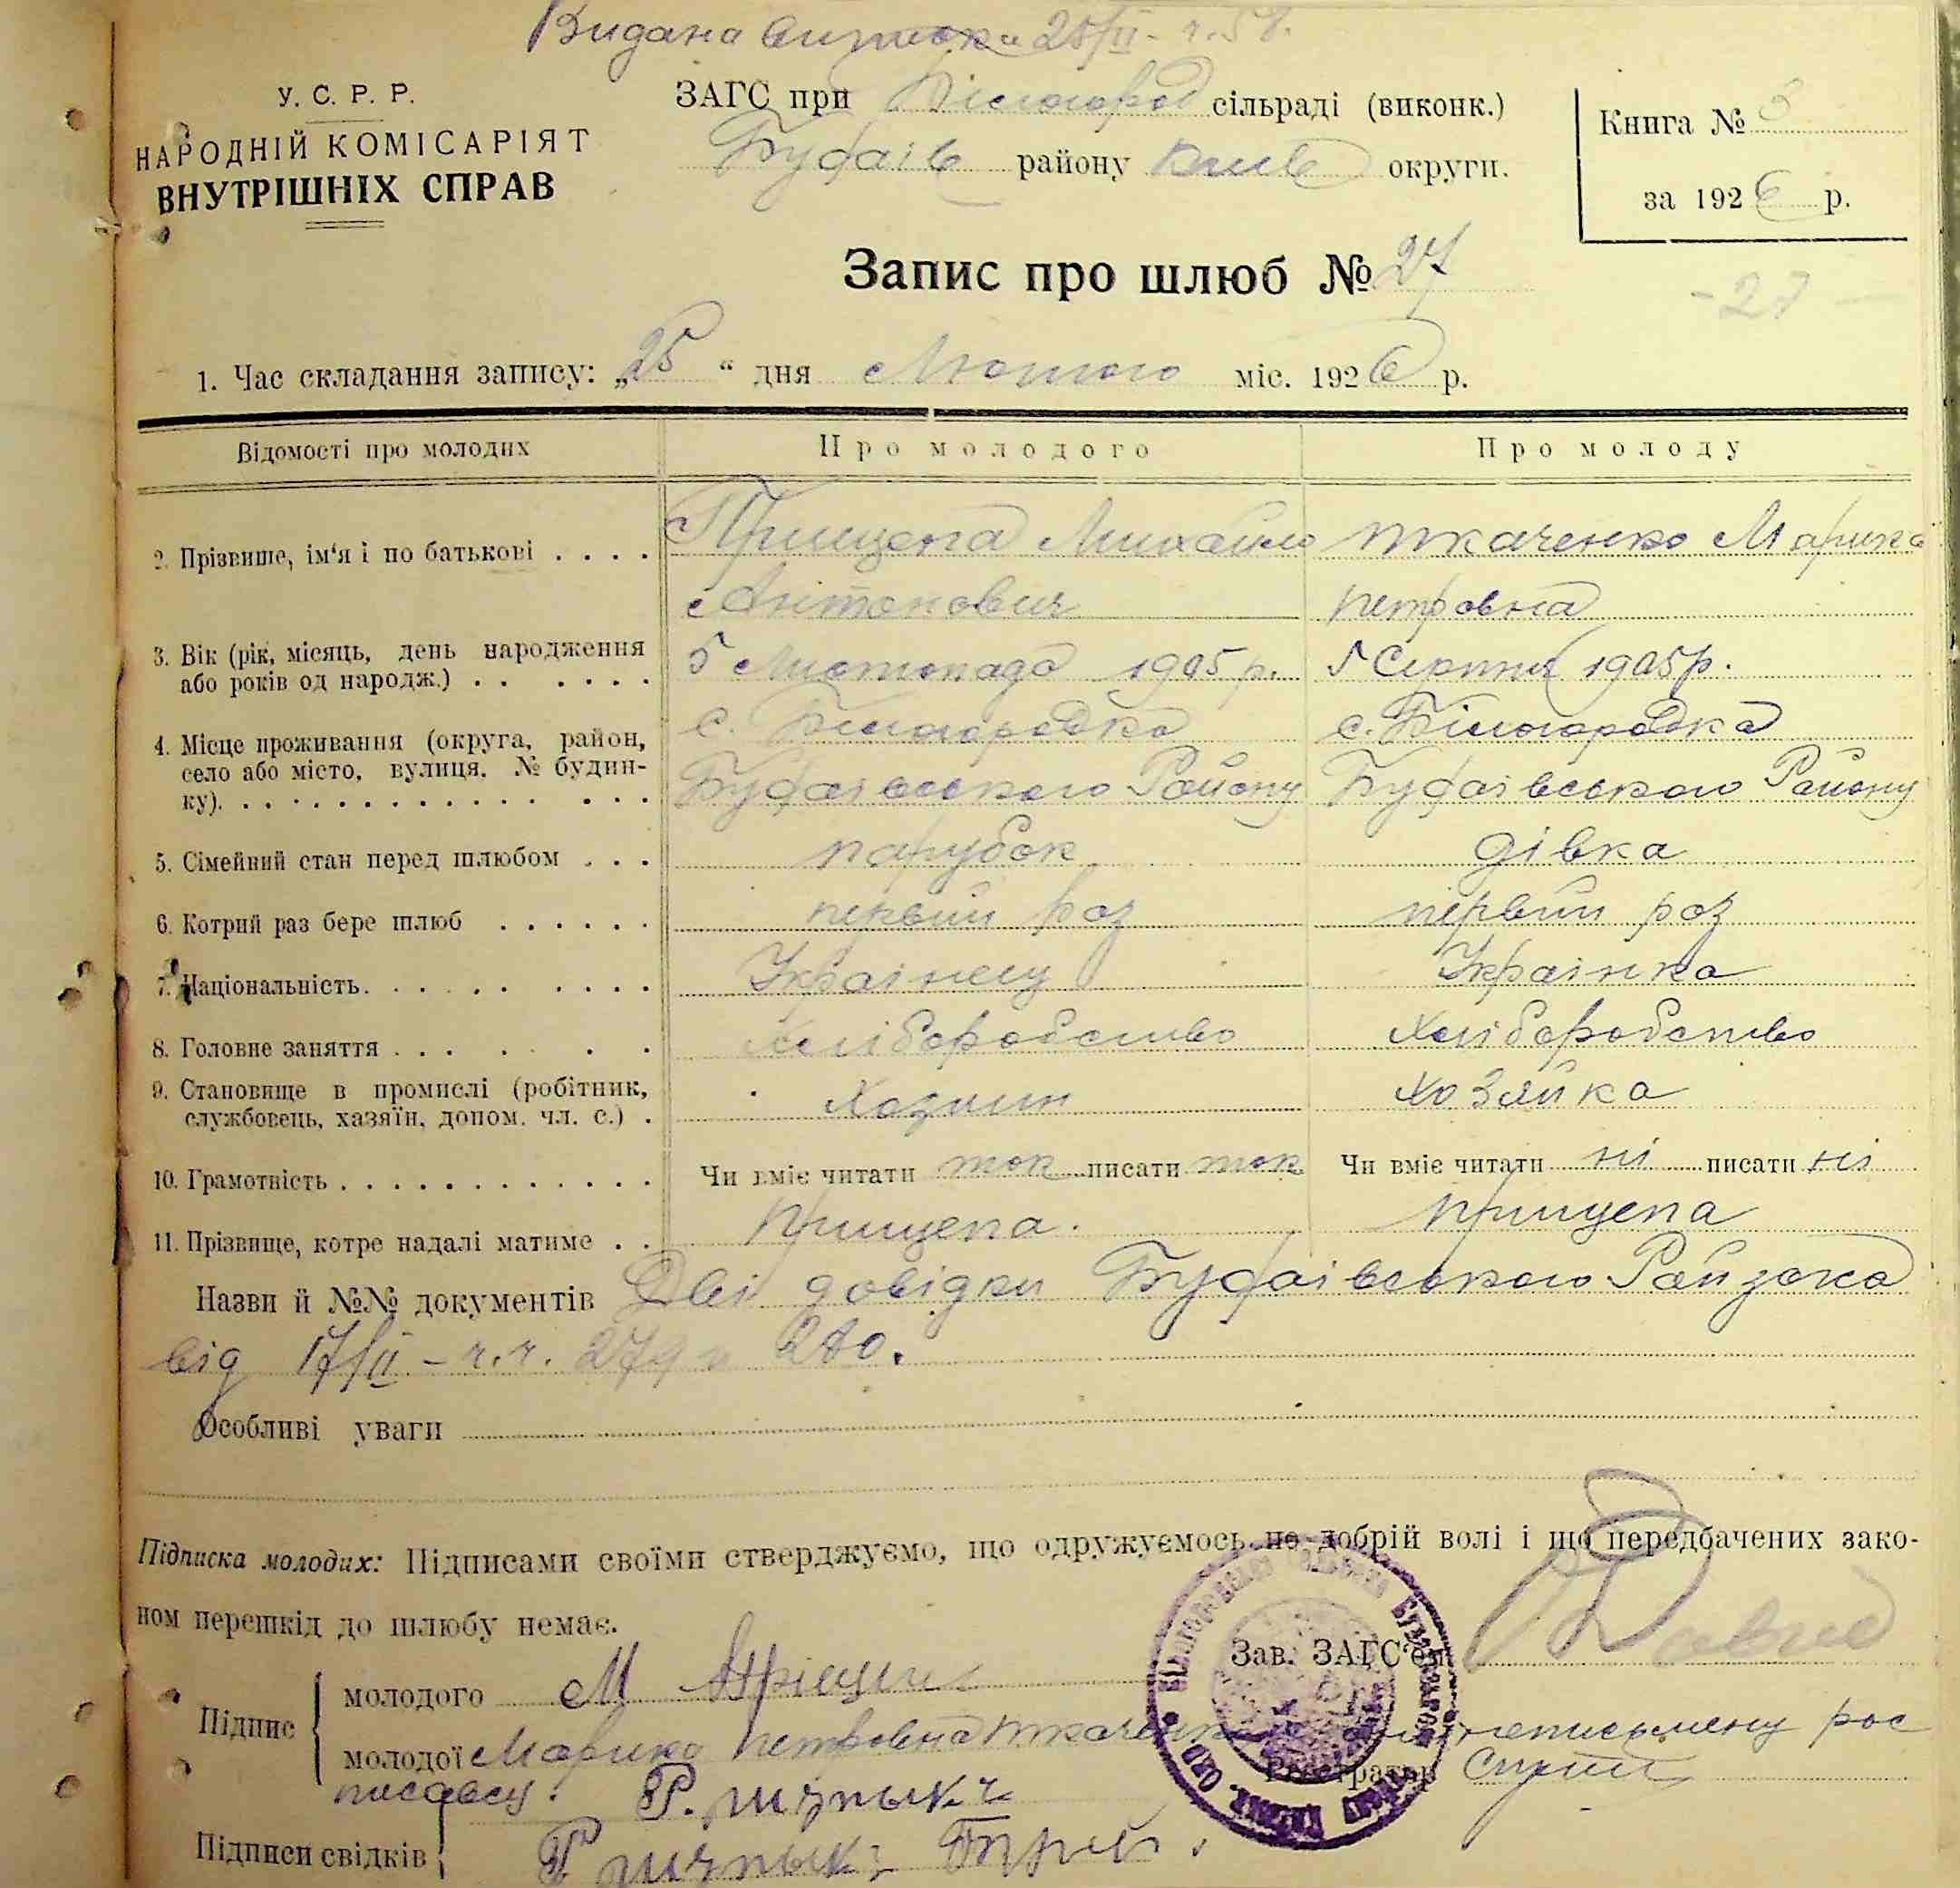 Видана виписка 25/II - ч. 51.
У. С. Р. Р.
НАРОДНІЙ КОМІСАРІЯТ
ВНУТРІШНІХ СПРАВ
ЗАГС при Білогород сільраді (виконк.)
Будаїв району Київ округи.
Книга № 3
за 1926 р.
Запис про шлюб № 27
- 27 -
1. Час складання запису: „25“ дня Лютого міс. 1926 р.
Відомості про молодих Про молодого Про молоду
2. Прізвище, ім'я і по батькові . . . . Прищепа Михайло Ткаченко Марика
Антонович Петровна
3. Вік (рік, місяць, день народження 5 Листопада 1905 р. 5 Серпня 1905 р.
або років од народж.) . . . . . .
с. Білогородка с. Білогородка
4. Місце проживання (округа, район,
село або місто, вулиця. № будин- Будаївського Району Будаївського Району
ку). . . . . . . . . . . . . . .
5. Сімейний стан перед шлюбом . . . парубок дівка
6. Котрий раз бере шлюб . . . . . . первий раз первий раз
7. Національність. . . . . . . . . . Українец Українка
8. Головне заняття . . . . . . Хліборобство Хліборобство
9. Становище в промислі (робітник, Хозяин Хозяйка
службовець, хазяїн, допом. чл. с.) .
10. Грамотність . . . . . . . . . . . . . Чи вміє читати так писати так Чи вміє читати ні писати ні
11. Прізвище, котре надалі матиме . . Прищепа. Прищепа
Назви й №№ документів Дві довідки Будаївського Райзагса
від 17/II - ч.ч. 279 и 280.
Особливі уваги
Підписка молодих: Підписами своїми стверджуємо, що одружуємось по добрій волі і що передбачених зако-
ном перешкід до шлюбу немає.
Зав. ЗАГС'ом
Підпис
молодого М Прищепа
молодої Марика Петровна Ткаченко неписьмену рос
писавсу.
Реєстратор
Підписи свідків